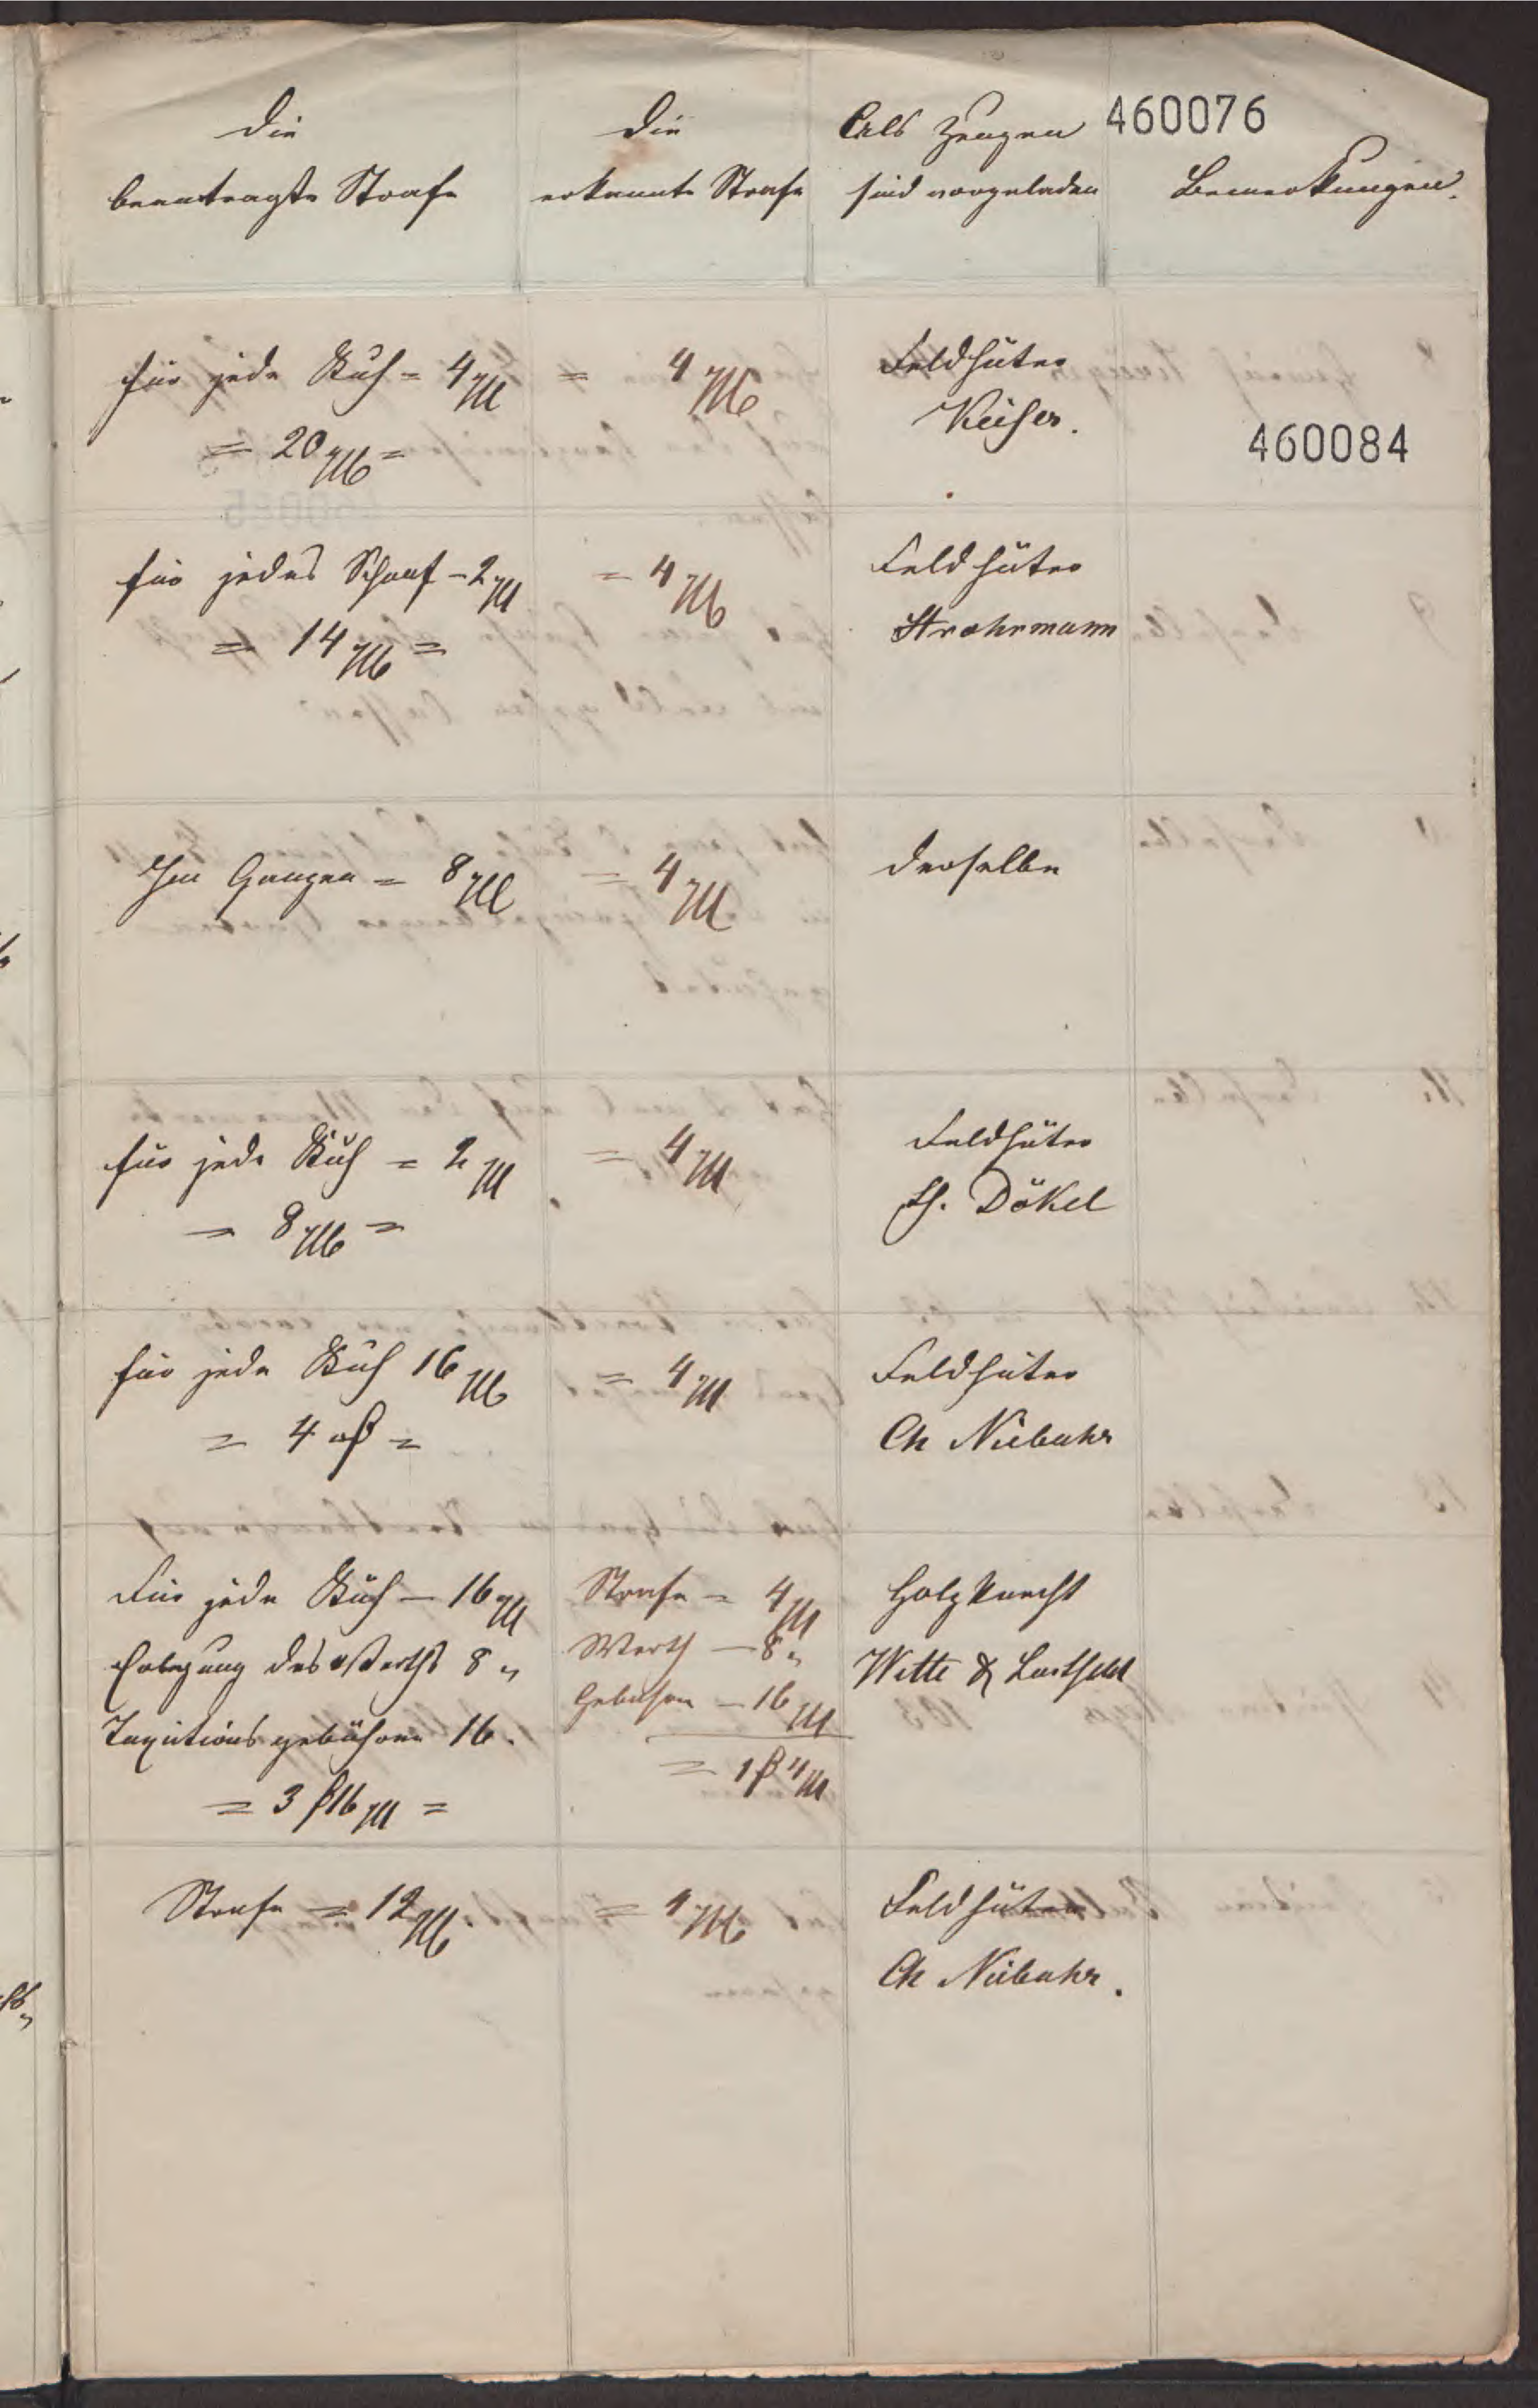 460076
Die
beantragte Strafe
Die
erkannte Strafe
Als Zeugen
sind vorgeladen
Bemerkungen.
für jede Kuh = 4 M
= 20 M =
= 4 M
Feldhüter
Keiser.
460084
für jedes Schaaf – 2 M
= 14 M =
= 4 M
Feldhüter
Strohrmann
Im Ganzen = 8 M
= 4 M
derselbe
für jede Kuh = 2 M
= 8 M =
= 4 M
Feldhüter
H. Dökel
für jede Kuh 16 M
= 4 ß =
= 4 M
Feldhüter
Ch Niebuhr
Für jede Kuh – 16 M
Erlegung des Werths 8 „
Taxationsgebühren 16.
= 3 ß 16 M =
Strafe = 4 M
Werth – 8 „
Gebühren – 16 M
= 1 ß 4 M
Holzknecht
Witte &
Strafe = 12 M.
= 4 M
Feldhüter
Ch Niebuhr.